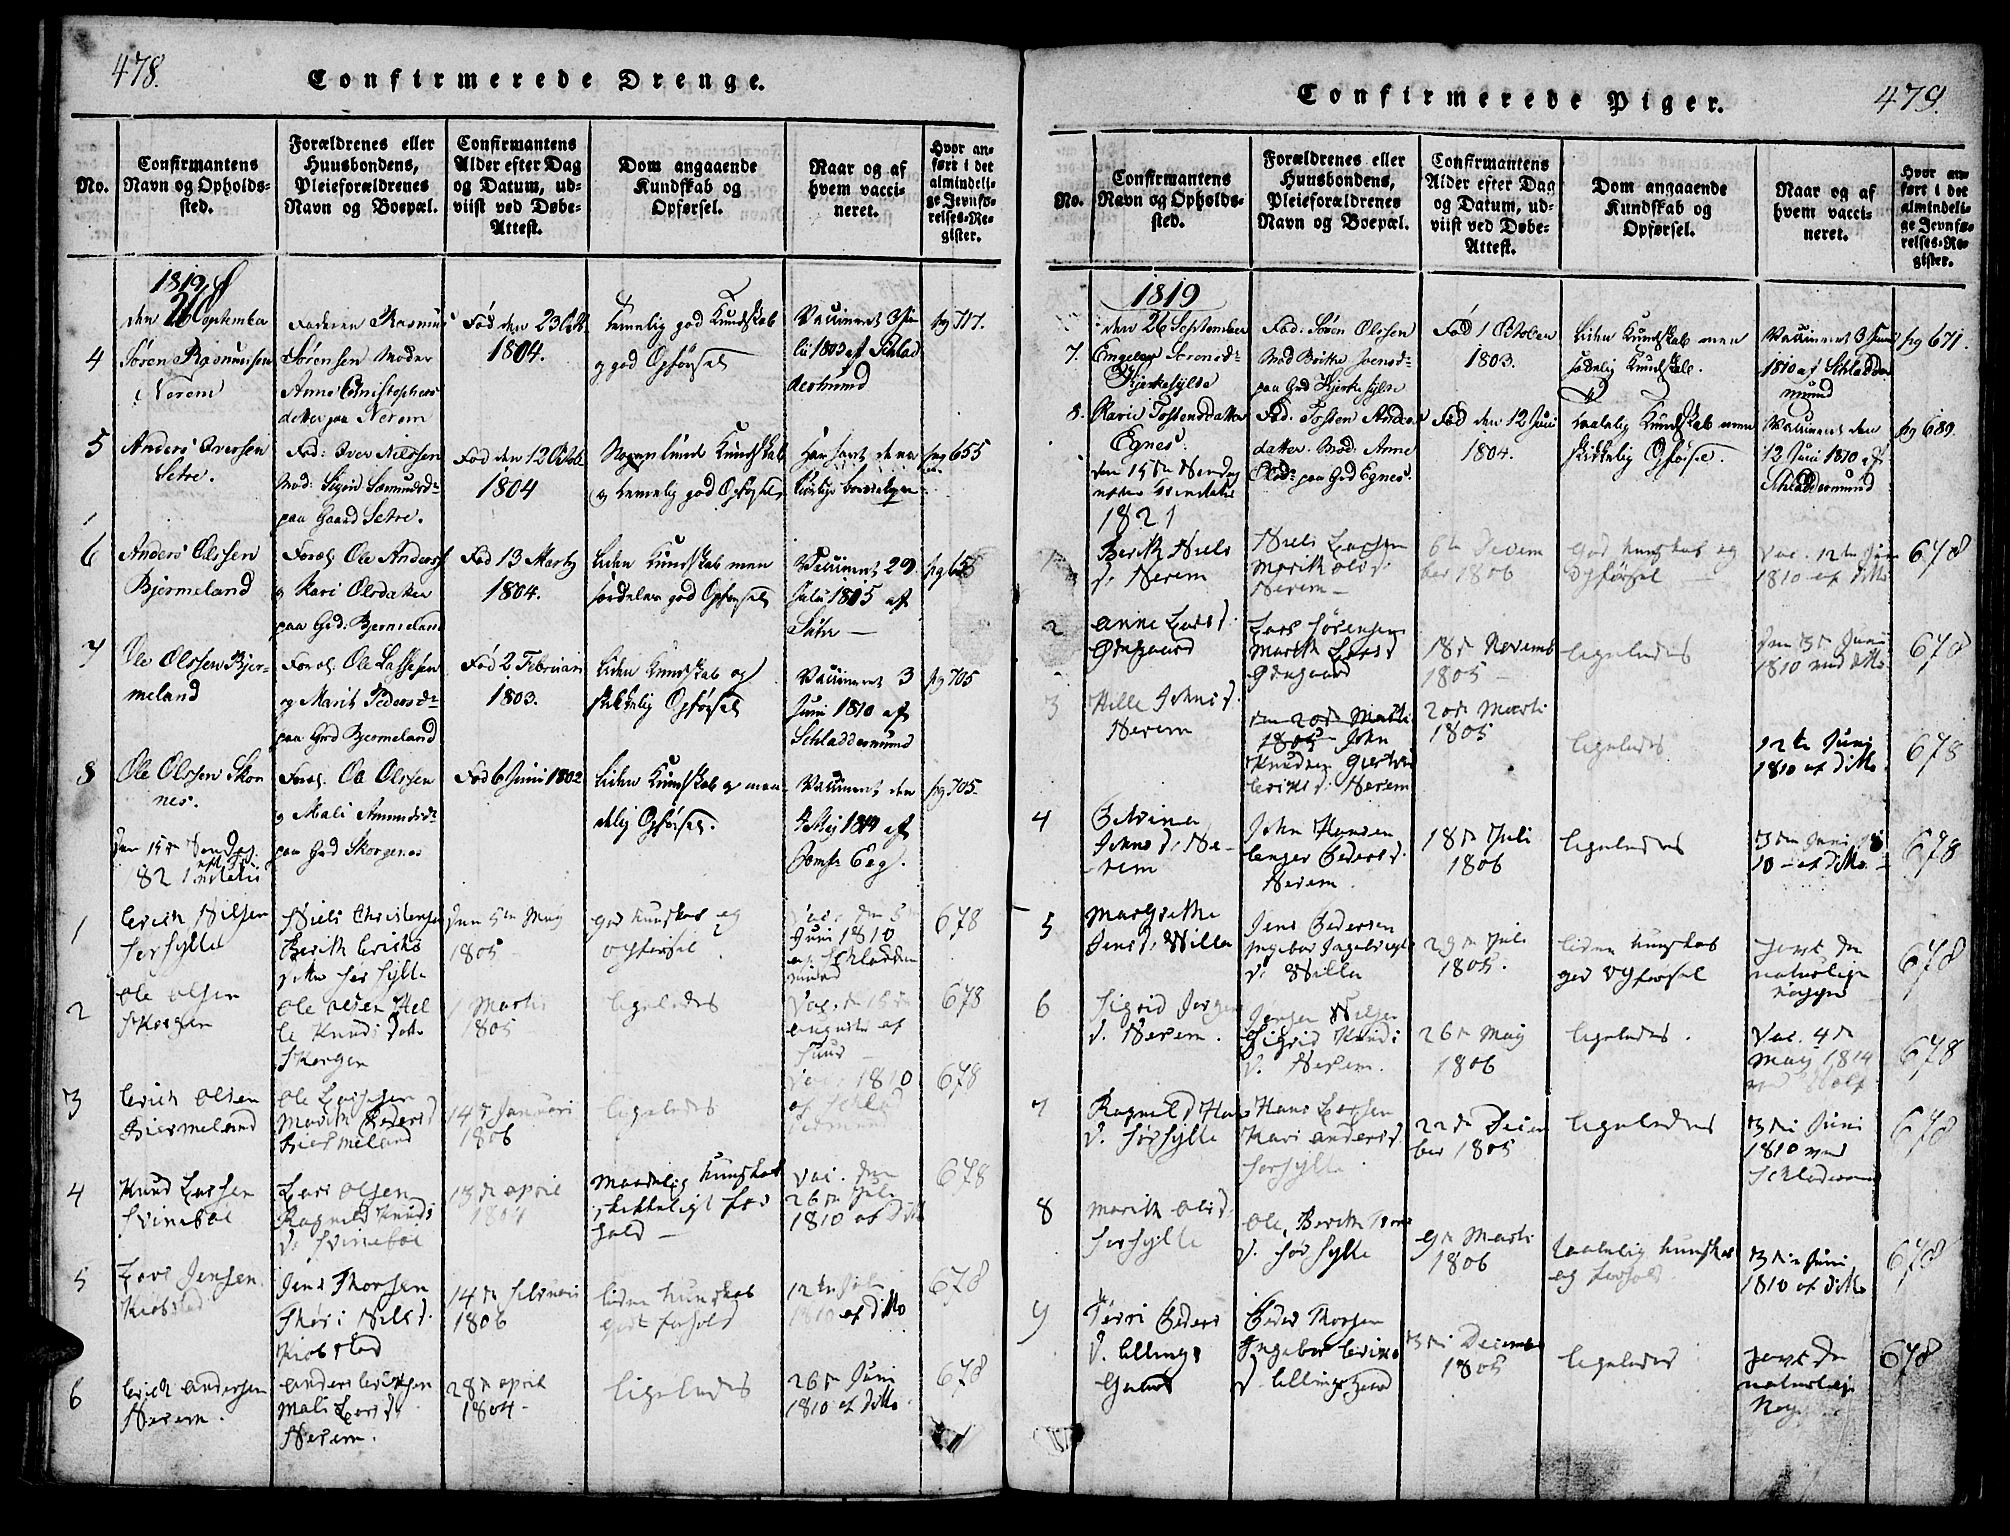 478.
Confirmerede Drenge.
No.
Confirmantens
Navn og Opholds-
sted.
Forældrenes eller
Huusbondens,
Pleieforældrenes
Navn og Boepæl.
Confirmantens
Alder efter Dag
og Datum, ud-
viist ved Døbe-
Attest.
Dom angaaende
Kundskab og
Opførsel.
Naar og af
hvem vacci-
neret.
Hvor an-
ført i det
almindeli-
ge Jevnfø-
relses-Re-
gister.
1819
den 26 Septembe
4
Søren Rasmussen
Nerem
Faderen Rasmus
Sørensen Moder
Anne Christophers
datter paa Nerem
Fød den 23
1804.
temelig god Kundskab
og god Opførsel
Vaccineret 3 Ju
af Schlad
dermund
pg 717.
5
Anders Iversen
Setre.
Fad: Iver Nilssen
Mod: Sigrid
paa Gaard Setre.
Fød den 12 Octob
1804
Kundskab
og temelig god Opførsel
Har havt de na
turlige
pg 655
6
Anders Olssen
Bjermeland
Foræl. Ole Anders
og Kari Olsdatter
paa Grd: Bjermeland
Fød 13 Marty
1804.
Liden Kundskab men
god Opførsel
Vaccineret 29
Juli 1805 af
7
Ole Olssen Bjer-
meland
Foræl. Ole Lassesen
og Marit Pedersdr
paa Grd Bjermeland
Fød 2 Februari
1803.
Liden Kundskab og
skikkelig Opførsel
Vaccineret 3
Juni 1810 af
Schladdermund
pg 705
8
Ole Olssen Skor
nes.
Foræl. Ole Olssen
og Mali Amundsdr
paa Grd Skorgenes
Fød 6 Juni 1802
Liden Kundskab og maa-
delig Opførsel.
Vaccineret den
af
Jomfr Eeg.
pg 705.
den 15de Søndag
1821
1
Erich Nilsen
Sørsylte
Niels Christensen
Berith Eriks
datter Sør Sylte
den 5te May
1805
god kunskab og
opførsel
Vac. den 5te
Juni 1810
af Schladder
mund
678
2
Ole Olsen
Skorgen
Ole Olsen Hel
le Knuds datt
Skorgen
1 Martii
1805
ligeledes
Vac. d 15de
Augusti af
678
3
Erich Olsen
Biermeland
Ole Larssen
Marith Peders d
Biermeland
14de Januari
1806
ligeledes
Vac. 1810
af Schlad
dermund
678
4
Knud Larsen
Svinebøe
Lars Olsen
Ragnild Knuds
d. Svinebøe
13de April
1804
maadelig kunskab
skikkeligt for
hold
Vac. den
26de Juli
1810 af ditto
678
5
Lars Jensen
Kiøbstad
Jens Thorsen
Thøri Nils d.
Kiøbstad
14de Februari
1806
liden kunskab
godt forhold
12te Juli
1810 af ditto
678
6
Erich Andersen
Nerem.
Anders Erichsen
Mali Lars d.
Nerem.
28de April
1804
ligeledes
26de Juni
1810 af ditto.
678
479.
Confirmerede Piger.
No.
Confirmantens
Navn og Opholds-
sted.
Forældrenes eller
Huusbondens,
Pleieforældrenes
Navn og Boepæl.
Confirmantens
Alder efter Dag
og Datum, ud-
viist ved Døbe-
Attest.
Dom angaaende
Kundskab og
Opførsel.
Naar og af
hvem vacci-
neret.
Hvor an-
ført i det
almindeli-
ge Jevnfø-
relses-Re-
gister.
1819
den 26 September
7.
Sørensdr
Kjerkesylte
Fad: Søren Olssen
Mod Berthe Iversdr
paa Grd Kjerkesylte
Fød 1 October
1803.
Liden Kundskab men
Vaccineret 3 Juni
1810 af Schladder
mund
pg 671.
8.
Karie Tostensdatter
Egnes.
Fad: Tosten Anders
Mod. Anne
paa Grd Egnes.
Fød den 12 Juni
1804.
Taalelig Kundskab men
skikkelig Opførsel.
Vaccineret den
12 Juni 1810 af
Schladdermund
pg 689.
den 15de Søndag
efter Trinitatis
1821
1
Berith Niels
d. Nerem
Niels Larsen
Marith Ols d.
Nerem
6te Decem
ber 1806
god kunskab og
opførsel
Vac. 12te Juni
1810 af ditto
678
2
Anne Lars d.
Ødegaard
Lars Sørensen
Marith Lars d
Ødegaard
18de Novemb
1805
ligeledes
den 3de Juni
1810 ved ditto
678
3
Hille Johns d.
Nerem
den 20de Martii
1805 John
Knudsen Giertru
Eriks d. Nerem
20de Marti
1805
ligeledes
12te Juni
1810 af ditto.
678
4
Johns d. Ne-
rem
John Hansen
Peders d.
Nerem.
18de Juli
1806
ligeledes
3de Juni 18
10 af ditto
678
5
Margrethe
Jens d. Villa
Jens Pedersen
Ingebor Ingebrigt
d. Villa
29de Juli
1805.
liden kunskab
god opførsel
havt de
naturlige
kopper
678
6
Sigrid Jørgen
d. Nerem.
Jørgen Nilsen
Sigrid Knuds
d. Nerem.
26de May
1806
ligeledes.
Vac. 4de
May 1814
ved
678
7
Ragnild Hans
d. Sørsylte
Hans Larsen
Kari Anders d.
Sørsylte
22de Decem
ber 1805
ligeledes
3de Juni
1810 ved
Schladermu
678
8
Marith Ols d.
Sørsylte
Ole, Berith
d. Sør Sylte
9de Marti
1806
taalelig kunskab
og forhold.
3de Juni
1810 af ditto
678
9
Tørri Peders
d. Ellings
Gaard
Peder Thorsen
Ingebor Eriks
d. Ellingsgaard
3de December
1805
ligeledes
havt de
naturlige
678